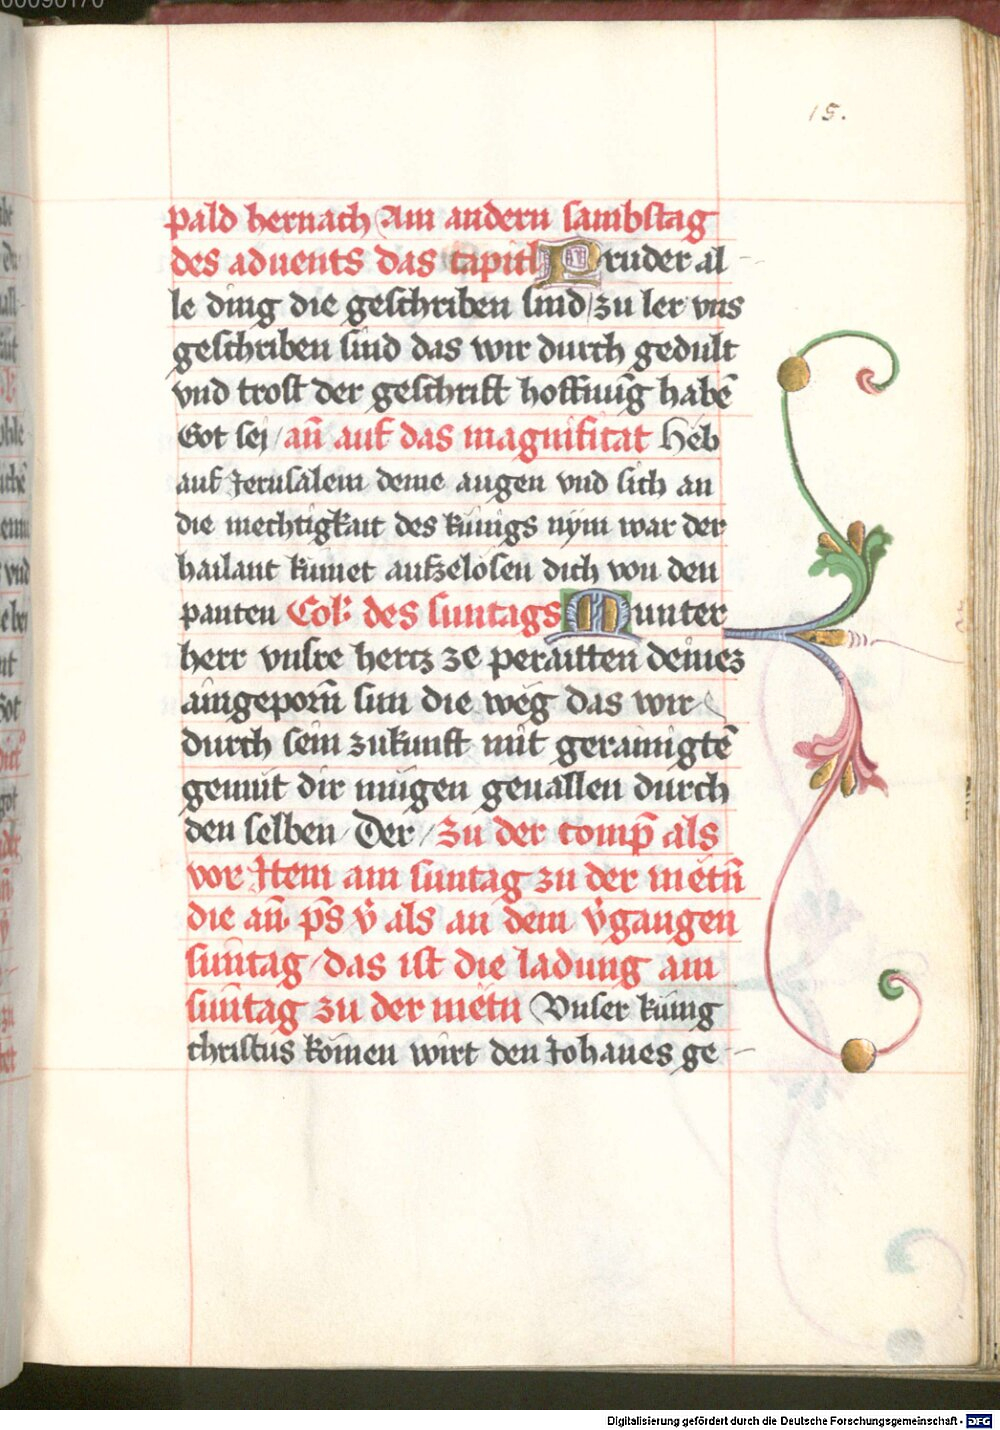 15.
pald hernach Am andern sambstag
des aduents das capitl Pruder al-
le ding die geschriben sind / zu ler vns
geschriben sind das wir durch gedult
vnd trost der geschrift hoffnūg habē
Got sej / an̄ auf das magnificat Heb
auf Jerusalem deine augen vnd sich an
die mechtigkait des künigs nym war der
hailant kūmet aufzelösen dich von den
panten Col: des suntags Munter
herr vnsre hertz ze peraitten deinez
aingeporn̄ sun die weg das wir
durch sein zukunft mit gerainigtē
gemüt dir mügen geuallen durch
den selben / Der / zu der comp̄ als
vor Item am suntag zu der metn̄
die an̄ p̄s v̄ als an dem v̄gangen
sun̄tag / das ist die ladung am
sun̄tag zu der metn Vnser küng
christus kōmen wirt den Johanes ge-
Digitalisierung gefördert durch die Deutsche Forschungsgemeinschaft - DFG